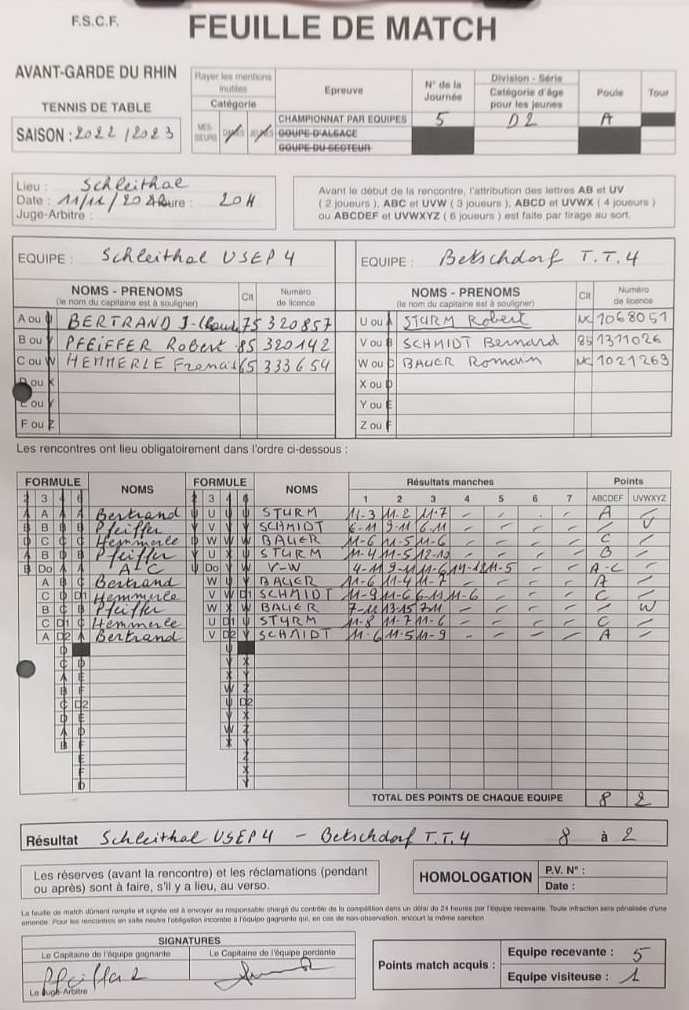 F.S.C.F.
FEUILLE DE MATCH
AVANT-GARDE DU RHIN
TENNIS DE TABLE
SAISON : 2022/2023
Rayer les mentions inutiles
Catégorie
Epreuve
N° de la Journée
Division - Série
Catégorie d'âge pour les jeunes
Poule
Tour
MES-SIEURS
CHAMPIONNAT PAR EQUIPES 5 D2 A
COUPE D'ALSACE
COUPE DU SECTEUR
Lieu : Schleithal
Date : 11/11/20 Heure : 20H
Juge-Arbitre :
Avant le début de la rencontre, l'attribution des lettres AB et UV
(2 joueurs), ABC et UVW (3 joueurs), ABCD et UVWX (4 joueurs)
ou ABCDEF et UVWXYZ (6 joueurs) est faite par tirage au sort.
EQUIPE : Schleithal USEP 4
EQUIPE : Betschdorf T.T.4
NOMS - PRENOMS
(le nom du capitaine est à souligner)
Clt
Numéro de licence
NOMS - PRENOMS
(le nom du capitaine est à souligner)
Clt
Numéro de licence
A ou U BERTRAND 75 320857
U ou A STURM Robert NC 1068051
B ou V PFEIFFER Robert 85 320142
V ou B SCHMIDT Bernard 85 1311026
C ou W HEMMERLE 65 333654
W ou C BAUER Romain NC 1021269
D ou X
X ou D
E ou Y
Y ou E
F ou Z
Z ou F
Les rencontres ont lieu obligatoirement dans l'ordre ci-dessous :
FORMULE
NOMS
FORMULE
NOMS
Résultats manches
Points
2 3 4 6
2 3 4 6
1 2 3 4 5 6 7
ABCDEF UVWXYZ
A A A A Bertrand U U U U STURM 11-3 11-2 11-7 - - - - A -
B B B B Pfeiffer V V V V SCHMIDT 6-11 9-11 6-11 - - - - - V
C C C Hemmerle W W W BAUER 11-6 11-5 11-6 - - - - C -
B D D Pfeiffer U X STURM 11-4 11-5 12-10 - - - - B -
Do A/C Do V-W 4-11 9-11 11-6 11-5 - - A-C -
A Bertrand W BAUER 11-6 11-4 11-7 - - - - A -
C D1 Hemmerle V D1 SCHMIDT 11-9 11-6 11-6 - - - C -
B Pfeiffer W BAUER 13-15 - - - - - W
C D1 Hemmerle U D1 STURM 11-8 11-7 11-6 - - - - C -
A D2 Bertrand V D2 SCHMIDT 11-6 11-5 11-9 - - - - A -
TOTAL DES POINTS DE CHAQUE EQUIPE 8 2
Résultat Schleithal USEP 4 - Betschdorf T.T.4 8 à 2
Les réserves (avant la rencontre) et les réclamations (pendant
ou après) sont à faire, s'il y a lieu, au verso.
HOMOLOGATION
P.V. N° :
Date :
La feuille de match dûment remplie et signée est à envoyer au responsable chargé du contrôle de la compétition dans un délai de 24 heures par l'équipe recevante. Toute infraction sera pénalisée d'une
amende. Pour les rencontres en salle neutre l'obligation incombe à l'équipe gagnante qui, en cas de non-observation, encourt la même sanction
SIGNATURES
Le Capitaine de l'équipe gagnante
Le Capitaine de l'équipe perdante
Le Juge-Arbitre
Points match acquis :
Equipe recevante : 5
Equipe visiteuse : 1